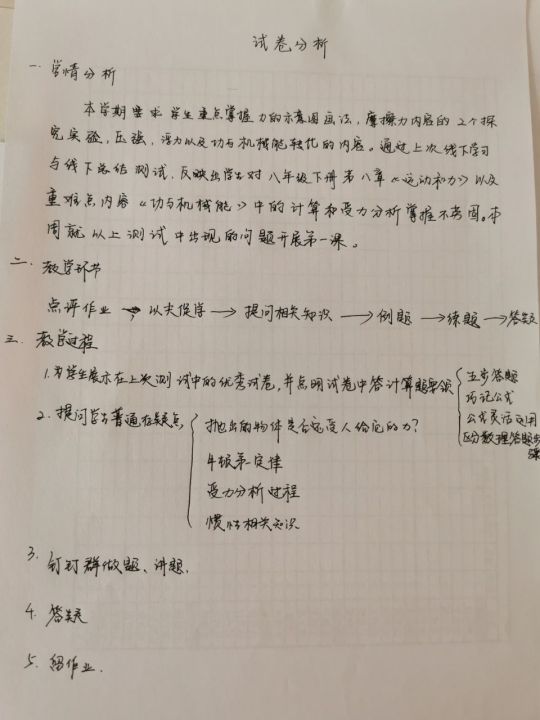 试卷分析
一、学情分析
本学期要求学生重点掌握力的示意图画法,摩擦力内容的2个探
究实验,压强,浮力以及功与机械能转化的内容。通过上次线下学习
与线下总结测试,反映出学生对八年级下册第八章《运动和力》以及
重难点内容《功与机械能》中的计算和受力分析掌握不牢固。本
周就以上测试中出现的问题开展第一课。
二、教学环节
点评作业→以夫促学→提问相关知识→例题→练题→答疑
三、教学过程
1.为学生展示在上次测试中的优秀试卷,并点明试卷中答计算题要领
五步答题
巧记公式
公式灵活运用
区分数理答题步骤
2.提问学生普通存疑点
抛出的物体是否还受人给它的力?
牛顿第一定律
受力分析过程
惯性相关知识
3.钉钉群做题、讲题.
4.答疑
5.留作业.